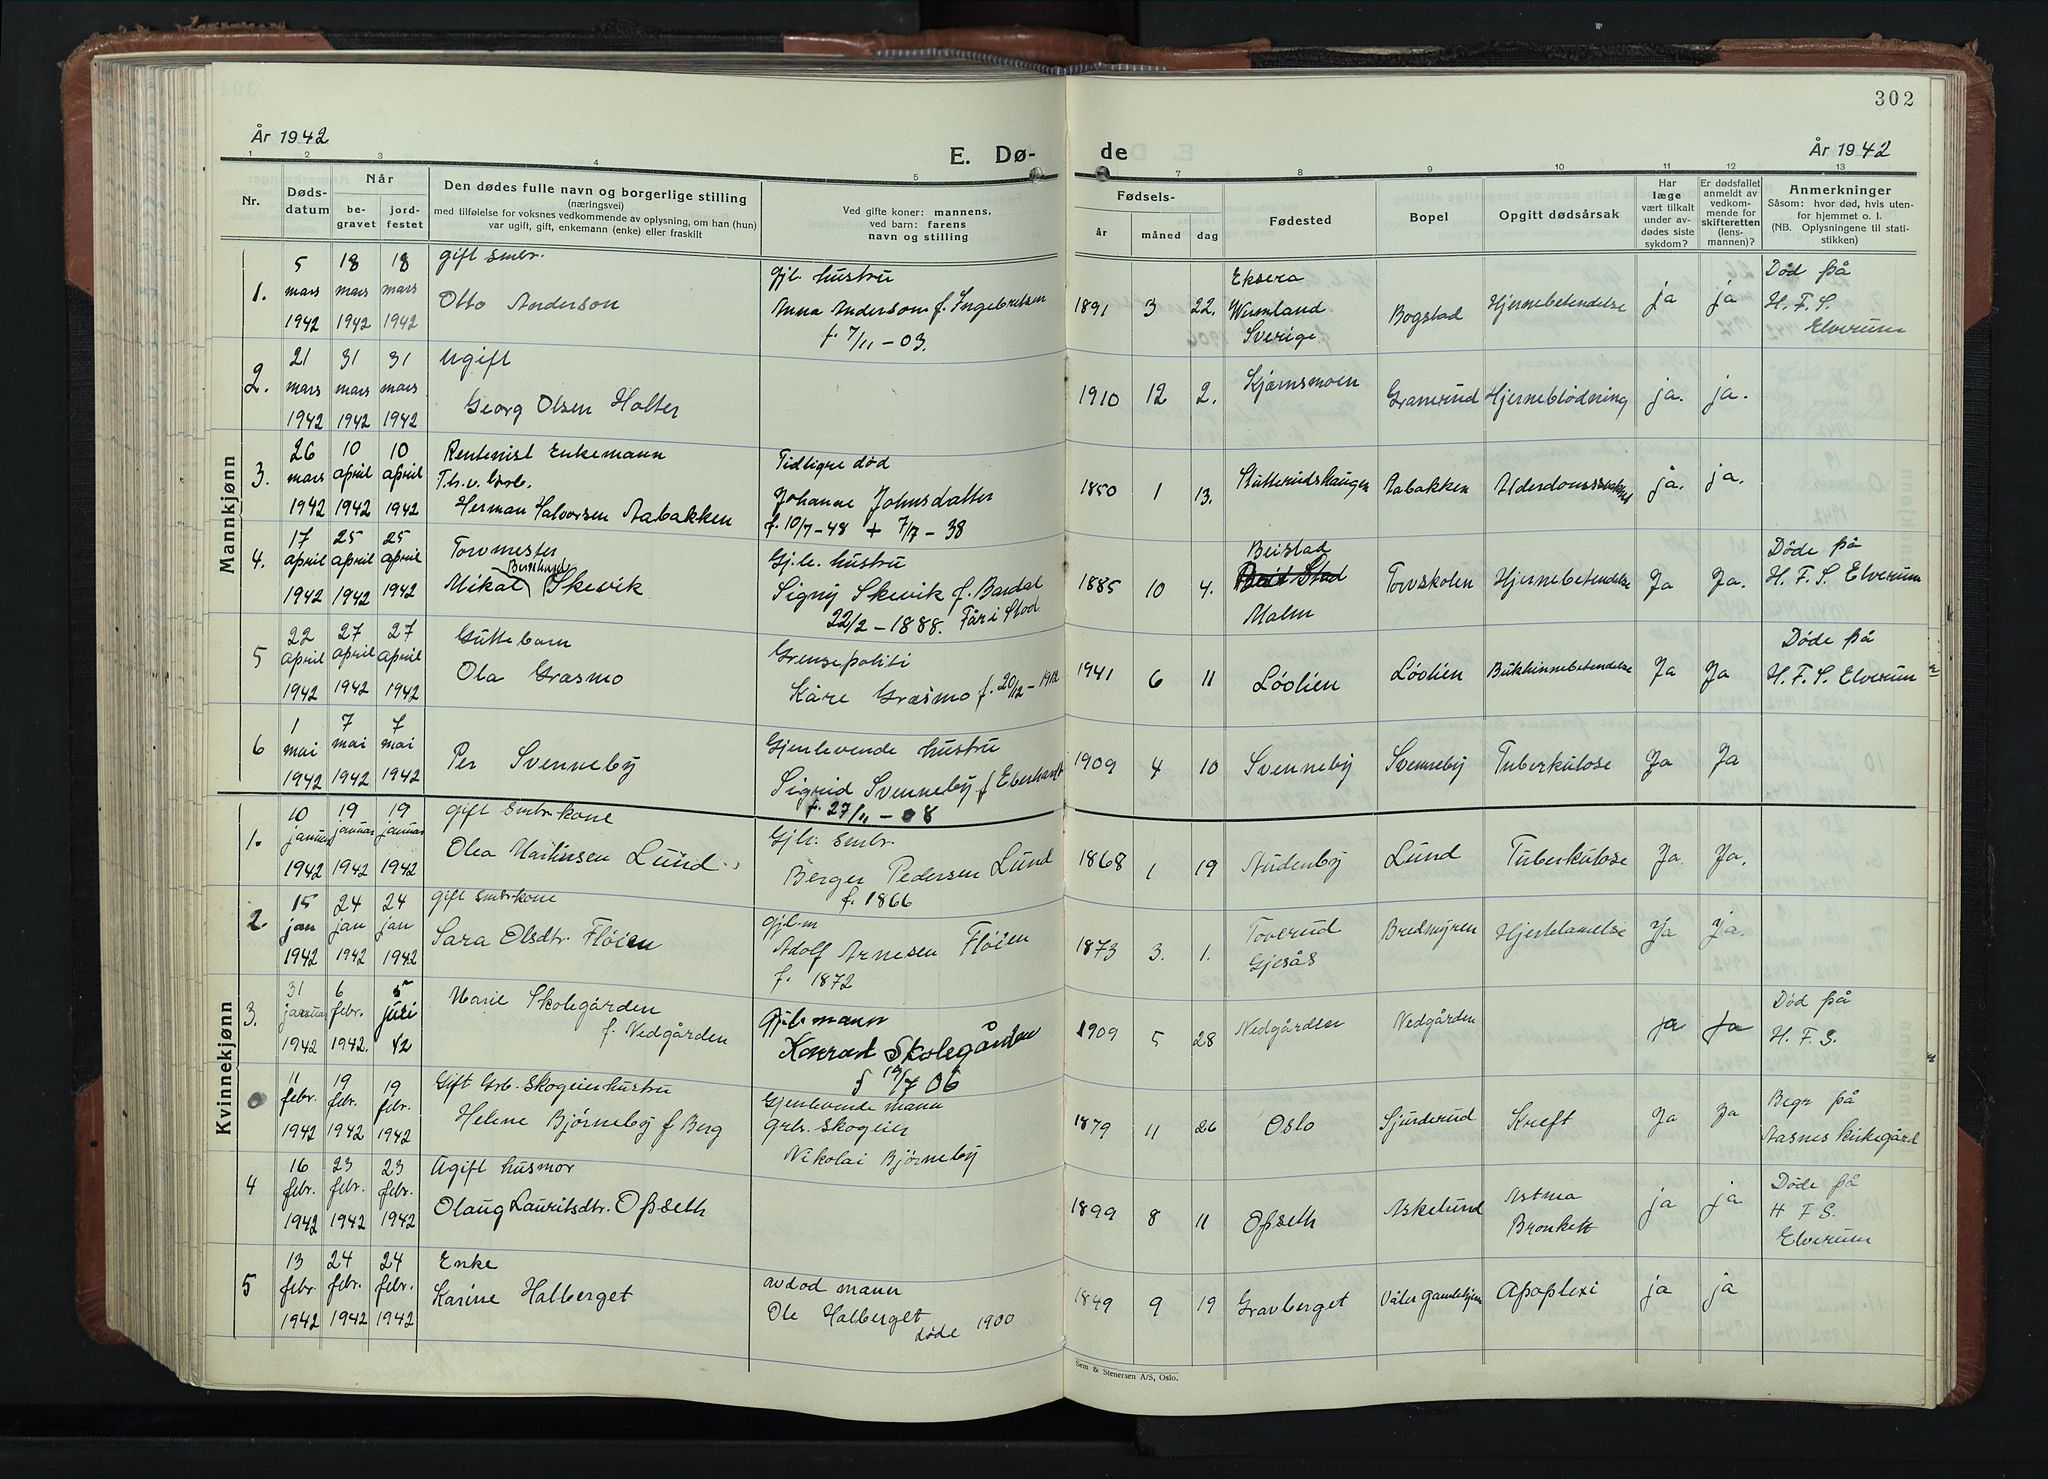 302
År 1942
E. Dø-
de
År 1942
1 2 3 4 5 7 8 9 10 11 12 13
Nr.
Døds-
datum
Når
be-
gravet
jord-
festet
Den dødes fulle navn og borgerlige stilling
(næringsvei)
med tilføielse for voksnes vedkommende av oplysning, om han (hun)
var ugift, gift, enkemann (enke) eller fraskilt
Ved gifte koner: mannens,
ved barn: farens
navn og stilling
Fødsels-
år måned dag
Fødested
Bopel
Opgitt dødsårsak
Har
læge
vært tilkalt
under av-
dødes siste
sykdom?
Er dødsfallet
anmeldt av
vedkom-
mende for
skifteretten
(lens-
mannen)?
Anmerkninger
Såsom: hvor død, hvis uten-
for hjemmet o. l.
(NB. Oplysningene til stati-
stikken)
Mannkjønn
1.
5
mars
1942
18
mars
1942
18
mars
1942
gift smbr.
Otto Anderson
Gjl. hustru
Anna Anderson f. Ingebretsen
f. 7/11 - 03.
1891 3 22.
Eksera
Wermland
Sverige
Bogstad
Hjernebetendelse
ja
ja
Død på
H. F. S.
Elverum
2.
21
mars
1942
31
mars
1942
31
mars
1942
Ugift
Georg Olsen Holter
1910 12 2.
Kjernsmoen
Granerud
Hjerneblødning
ja.
ja.
3.
26
mars
1942
10
april
1942
10
april
1942
Rentenist Enkemann
Th. v.
Herman Halvorsen Aabakken
Tidligre død
Johanne Johnsdatter
f. 10/7 - 48 + 7/7 - 38
1850 1 13.
Stutterudshaugen
Aabakken
ja.
ja.
4.
17
april
1942
25
april
1942
25
april
1942
Torvmester
Bernhard
Mikal Skevik
Gj.l. hustru
Signy Skevik f. Bardal
22/2 - 1888. Får i Stod
1885 10 4.
Beistad
Malm
Torvskolen
Hjernebetendelse
Ja
Ja.
Døde på
H. F. S. Elverum
5
22
april
1942
27
april
1942
27
april
1942
Guttebarn
Ola Grasmo
Grensepoliti
Kåre Grasmo f. 20/2 - 1912
1941 6 11
Løvlien
Løvlien
Bukhinnebetendelse
Ja
Ja
Døde på
H. F. S. Elverum
6
1
mai
1942
7
mai
1942
7
mai
1942
Per Svenneby
Gjenlevende hustru
Sigrid Svenneby f Eberhardt
f. 27/11 - 08
1909 4 10
Svenneby
Svenneby
Tuberkulose
Ja
Ja
Kvinnekjønn
1.
10
januar
1942
19
januar
1942
19
januar
1942
gift smbr.kone
Olea Martinsen Lund
Gjl. smbr.
Berger Pedersen Lund
f. 1866
1868 1 19
Audenby
Lund
Tuberkulose
Ja.
Ja.
2.
15
jan
1942
24
jan
1942
24
jan
1942
gift smbr.kone
Sara Olsdtr. Fløien
gjl.m
Adolf Arnesen Fløien
f. 1872
1873 3. 1.
Toverud
Gjesås
Bredmyren
Hjertelamelse
Ja
Ja.
3.
31
januar
1942
6
febr.
1942.
5
juli
42
Marie Skolegården
f. Nedgården
Gjl. mann
Konrad Skolegården
f 19/7 06
1909 5 28
Nedgården
Nedgården
ja
ja
Død på
H. F. S.
11
febr.
1942
19
febr.
1942
19
febr.
1942
Gift Grb. skogeierhustru
Helene Bjørneby f Berg
Gjenlevende mann
grb. skogeier
Nikolai Bjørneby
1879 11 26
Oslo
Sjunderud
Kreft
Ja
Ja
Begr på
Aasnes kirkegård
4
16
febr.
1942
23
febr.
1942
23
febr.
1942
Ugift husmor
Olaug Lauritsdtr. Opseth
1899 8 11
Opseth
Askelund
Astma
Bronkitt
ja
ja
Døde på
H F S.
Elverum
5
13
febr.
1942
24
febr.
1942
24
febr.
1942
Enke
Karine Halberget
avdød mann
Ole Halberget
døde 1900
1849 9 19
Gravberget
Våler gamlehjem
Apopleksi
ja
ja
Sem & Stenersen A/S, Oslo.